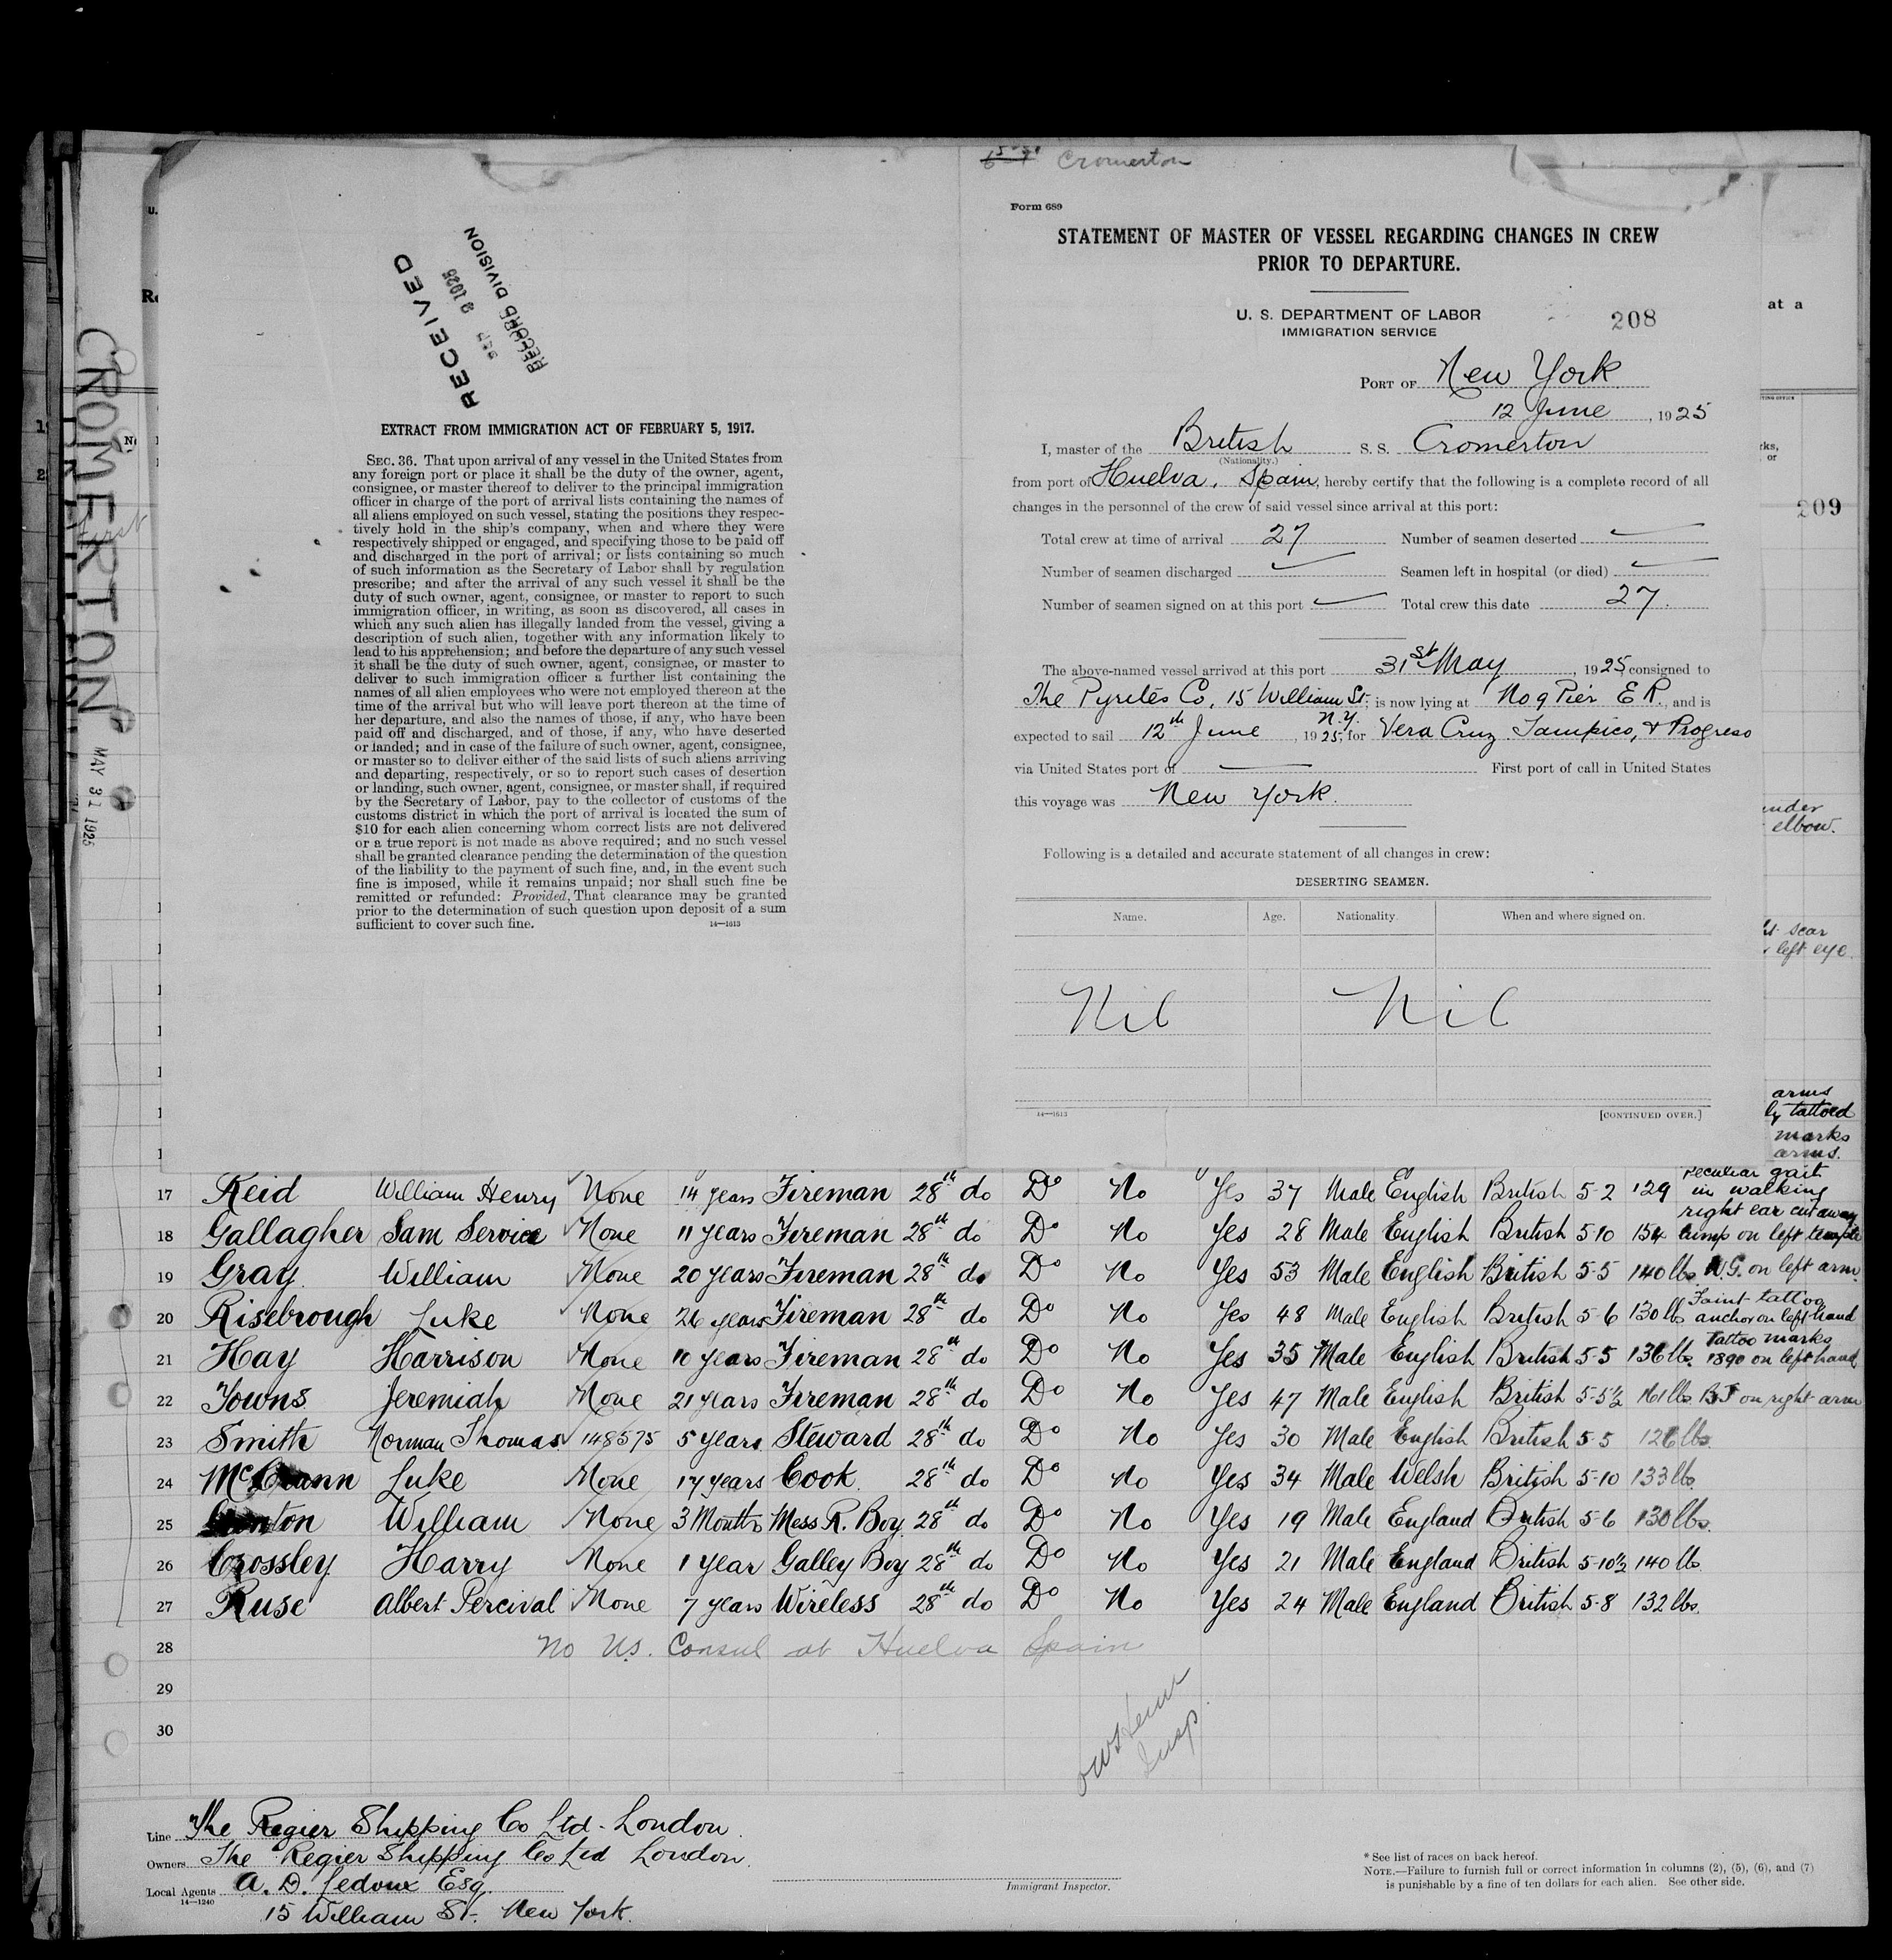 Cromerton
Form 689
STATEMENT OF MASTER OF VESSEL REGARDING CHANGES IN CREW
PRIOR TO DEPARTURE.
U. S. DEPARTMENT OF LABOR
IMMIGRATION SERVICE
208
PORT OF New York
12 June, 1925
I, master of the British S. S. Cromerton
(Nationality.)
from port of Huelva, Spain, hereby certify that the following is a complete record of all
changes in the personnel of the crew of said vessel since arrival at this port:
Total crew at time of arrival 27 Number of seamen deserted —
Number of seamen discharged — Seamen left in hospital (or died) —
Number of seamen signed on at this port — Total crew this date 27.
The above-named vessel arrived at this port 31st May, 1925, consigned to
The Pyrites Co, 15 William St, N.Y. is now lying at No 9 Pier E R., and is
expected to sail 12th June, 1925, for Vera Cruz Tampico, & Progreso
via United States port of — First port of call in United States
this voyage was New York.
Following is a detailed and accurate statement of all changes in crew:
DESERTING SEAMEN.
Name. Age. Nationality. When and where signed on.
Nil Nil
14—1613 [CONTINUED OVER.]
RECEIVED
RECORD DIVISION
EXTRACT FROM IMMIGRATION ACT OF FEBRUARY 5, 1917.
SEC. 36. That upon arrival of any vessel in the United States from
any foreign port or place it shall be the duty of the owner, agent,
consignee, or master thereof to deliver to the principal immigration
officer in charge of the port of arrival lists containing the names of
all aliens employed on such vessel, stating the positions they respec-
tively hold in the ship's company, when and where they were
respectively shipped or engaged, and specifying those to be paid off
and discharged in the port of arrival; or lists containing so much
of such information as the Secretary of Labor shall by regulation
prescribe; and after the arrival of any such vessel it shall be the
duty of such owner, agent, consignee, or master to report to such
immigration officer, in writing, as soon as discovered, all cases in
which any such alien has illegally landed from the vessel, giving a
description of such alien, together with any information likely to
lead to his apprehension; and before the departure of any such vessel
it shall be the duty of such owner, agent, consignee, or master to
deliver to such immigration officer a further list containing the
names of all alien employees who were not employed thereon at the
time of the arrival but who will leave port thereon at the time of
her departure, and also the names of those, if any, who have been
paid off and discharged, and of those, if any, who have deserted
or landed; and in case of the failure of such owner, agent, consignee,
or master so to deliver either of the said lists of such aliens arriving
and departing, respectively, or so to report such cases of desertion
or landing, such owner, agent, consignee, or master shall, if required
by the Secretary of Labor, pay to the collector of customs of the
customs district in which the port of arrival is located the sum of
$10 for each alien concerning whom correct lists are not delivered
or a true report is not made as above required; and no such vessel
shall be granted clearance pending the determination of the question
of the liability to the payment of such fine, and, in the event such
fine is imposed, while it remains unpaid; nor shall such fine be
remitted or refunded: Provided, That clearance may be granted
prior to the determination of such question upon deposit of a sum
sufficient to cover such fine. 14—1613
CROMERTON
MAY 31 1925
at a
209
elbow.
scar
left eye.
arms
tattoed
marks
arms.
17 Reid William Henry None 14 years Fireman 28th do Do No Yes 37 Male English British 5-2 129 peculiar gait in walking
18 Gallagher Sam Service None 11 years Fireman 28th do Do No Yes 28 Male English British 5-10 154 right ear cut away lump on left temple
19 Gray William None 20 years Fireman 28th do Do No Yes 53 Male English British 5-5 140 lbs. W.G. on left arm.
20 Risebrough Luke None 26 years Fireman 28th do Do No Yes 48 Male English British 5-6 130 lbs Faint tattoo anchor on left hand
21 Hay Harrison None 10 years Fireman 28th do Do No Yes 35 Male English British 5-5 136 lbs. Tattoo marks 1890 on left hand
22 Towns Jeremiah None 21 years Fireman 28th do Do No Yes 47 Male English British 5-5½ 161 lbs. on right arm
23 Smith Norman Thomas 148575 5 years Steward 28th do Do No Yes 30 Male English British 5-5 126 lbs.
24 Luke None 17 years Cook 28th do Do No Yes 34 Male Welsh British 5-10 133 lbs
25 William None 3 Months Mess R. Boy 28th do Do No Yes 19 Male England British 5-6 130 lbs.
26 Crossley Harry None 1 year Galley Boy 28th do Do No Yes 21 Male England British 5-10½ 140 lb
27 Ruse Albert Percival None 7 years Wireless 28th do Do No Yes 24 Male England British 5-8 132 lbs.
28 No U.S. Consul at Huelva Spain
29
30
Insp.
Line The Regier Shipping Co Ltd. London.
Owners The Regier Shipping Co Ltd London.
Local Agents A. D. Ledoux Esq.
14—1240
15 William St. New York.
Immigrant Inspector.
* See list of races on back hereof.
NOTE.—Failure to furnish full or correct information in columns (2), (5), (6), and (7)
is punishable by a fine of ten dollars for each alien. See other side.